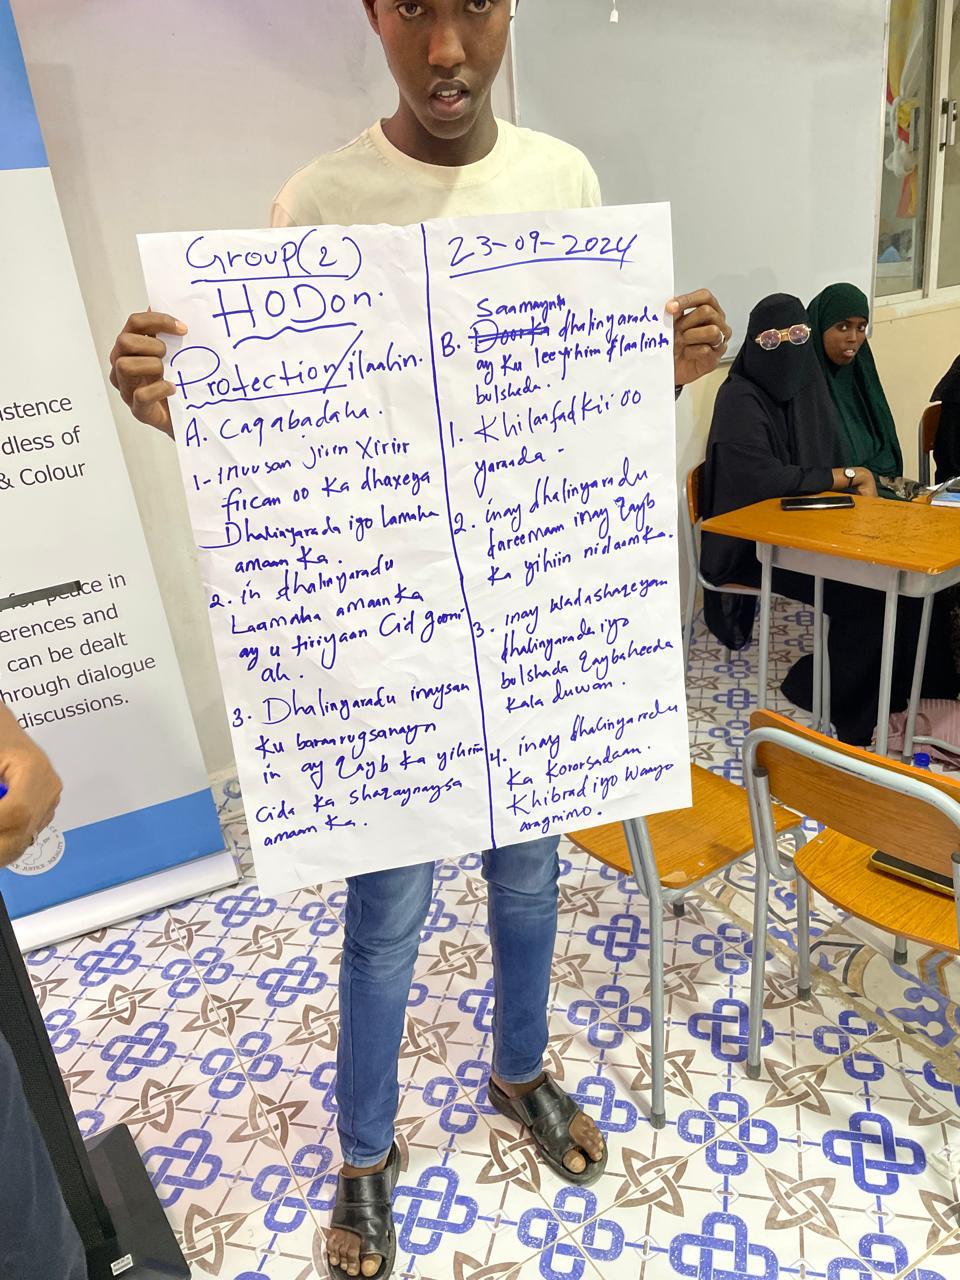 istence
dless of
& Colour
for peace in
erences and
can be dealt
hrough dialogue
discussions.
JUSTICE
Group(2)
HODon.
Protection/ilaalin.
A. Caqabadaha.
1- inuusan jirin Xiriir
fiican oo ka dhaxeya
Dhalinyarada iyo Lamaha
amaan ka.
2. in dhalinyaradu
Laamaha amaanka
ay u tiriyaan Cid gooni
ah.
3. Dhalinyaradu inaysan
ku baraarugsanayn
in ay Qayb ka yihiin
Cida ka shaqaynaysa
amaan ka.
23-09-2024
Saamaynta
B. Doorka dhalinyarada
ay ku leeyihiin ilaalinta
bulshada.
1. Khilaafadkii oo
yaraada -
2. inay dhalinyaradu
dareemaan inay Qayb
ka yihiin nidaamka.
3. inay wadashaqeyaan
dhalinyarada iyo
bulshada Qaybaheeda
kala duwan.
4. inay dhalinyaradu
ka kororsadaan.
Khibrad iyo Waayo
aragnimo.